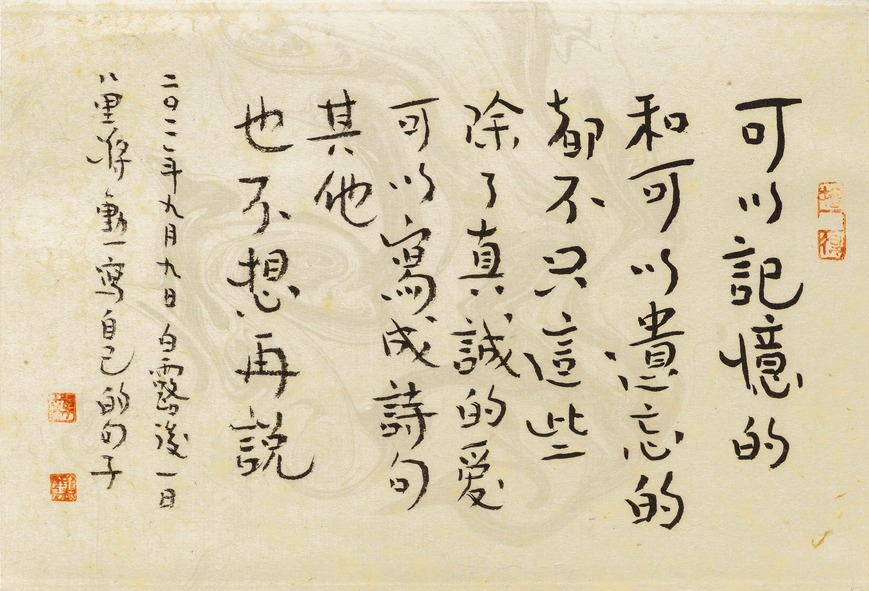 可以記憶的
和可以遺忘的
都不只這些
除了真誠的愛
可以寫成詩句
其他
也不想再說
二〇一一年九月九日白露後一日
八里蔣勳一寫自己的句子